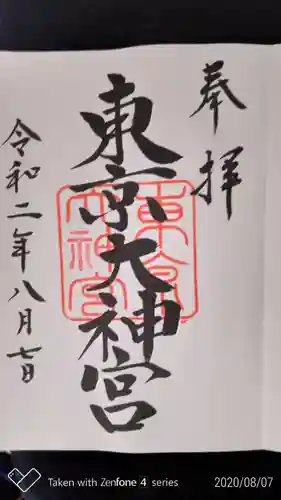 奉拝
東京大神宮
令和二年八月七日
東京大神宮
Taken with Zenfone 4 series
2020/08/07